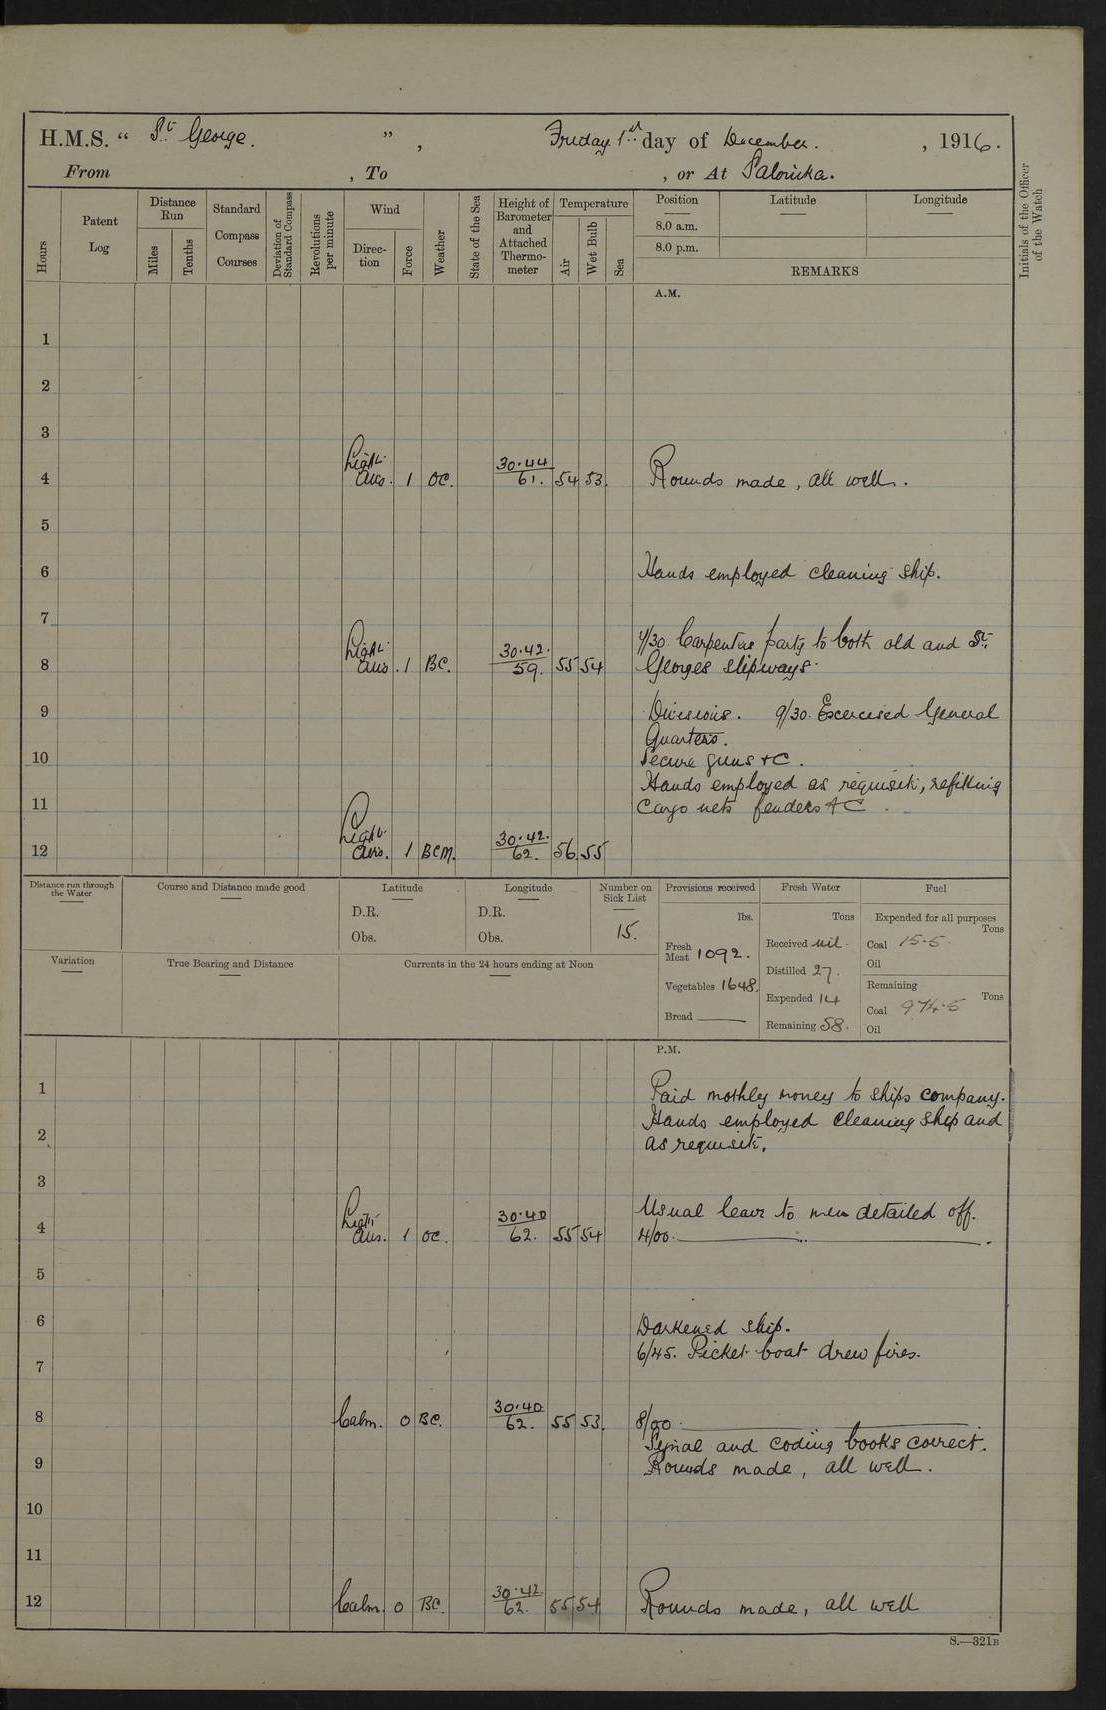 H.M.S. “ St George. ” , Friday 1st day of December. , 1916.
From , To , or At Salonika.
Hours
Patent Log
Distance Run
Miles
Tenths
Standard Compass Courses
Deviation of Standard Compass
Revolutions per minute
Wind
Direction
Force
Weather
State of the Sea
Height of Barometer and Attached Thermometer
Temperature
Air
Wet Bulb
Sea
Position Latitude Longitude
8.0 a.m.
8.0 p.m.
REMARKS
Initials of the Officer of the Watch
A.M.
1
2
3
Light
4 airs. 1 OC. 30.44/61. 54 53. Rounds made, all well.
5
6 Hands employed cleaning ship.
7
Light 7/30. Carpenters party to both old and St.
8 airs. 1 BC. 30.42./59. 55 54 Georges slipways.
9 Divisions. 9/30. Excercised General
Quarters.
10 Secure guns &C.
Hands employed as requisite, refitting
11 Cargo nets fenders &C.
Light
12 airs. 1 BCM. 30.42./62. 56 55
Distance run through the Water
Course and Distance made good
Latitude
D.R.
Obs.
Longitude
D.R.
Obs.
Number on Sick List
15.
Provisions received
lbs.
Fresh Meat 1092.
Vegetables 1648.
Bread ———
Fresh Water
Tons
Received nil.
Distilled 27.
Expended 14
Remaining 58.
Fuel
Expended for all purposes
Tons
Coal 15.5
Oil
Remaining
Tons
Coal 974.5
Oil
Variation
True Bearing and Distance
Currents in the 24 hours ending at Noon
P.M.
1 Paid mothly money to ships company.
Hands employed cleaning ship and
2 as requisite.
3
Light Usual leave to men detailed off.
4 airs. 1 OC. 30.40/62. 55 54 4/00.
5
6 Darkened ship.
7 6/45. Picket boat drew fires.
8 Calm. 0 BC. 30.40/62. 55 53. 8/00.
Signal and coding books correct.
9 Rounds made, all well.
10
11
12 Calm. 0 BC. 30.42./62. 55 54 Rounds made, all well
S.—321B